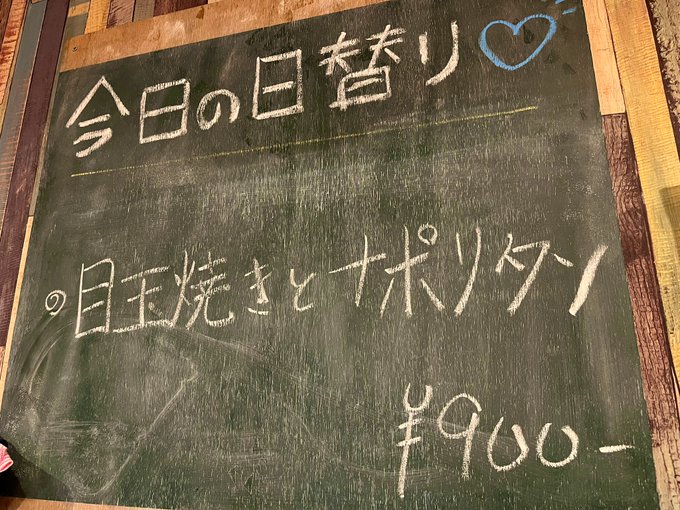 今日の日替り♡
◎目玉焼きとナポリタン
¥900-